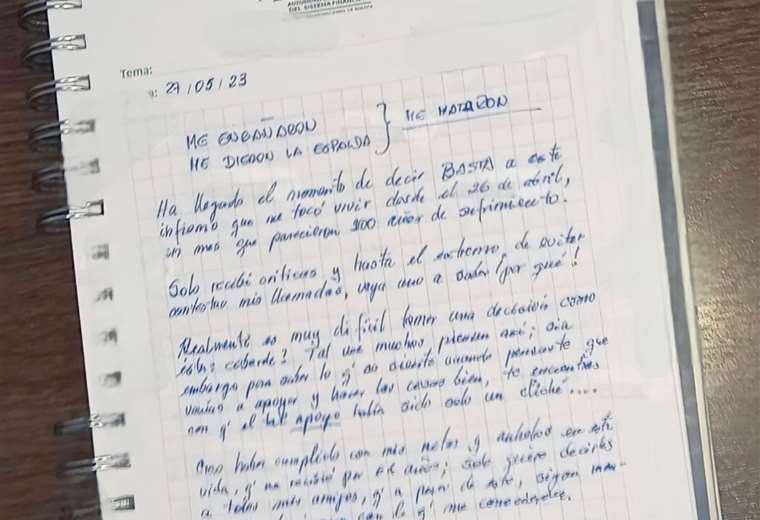 DEL SISTEMA FINAN
Tema:
27/05/23
ME ENGAÑARON
ME DIERON LA ESPALDA } ME MATARON
Ha llegado el momento de decir BASTA a este
infierno que me tocó vivir desde el 26 de abril,
un mes que parecieron 100 años de sufrimiento.
Solo recibí críticas y hasta el extremo de evitar
contestar mis llamadas, vaya uno a saber (por qué!
Realmente es muy difícil tomer una decisión como
ésta; cobarde? Tal vez muchos piensan así; sin
embargo para saber lo q' se siente cuando pensaste que
venían a apoyar y hacer las cosas bien, te encuentras
con q' el tal apoyo había sido solo un cliché....
Creo haber cumplido con mis metas y anhelos en esta
vida, q' me recibió por años; solo quiero decirles
a todos mis amigos, q' a pesar de esto, sigan
con lo q' me